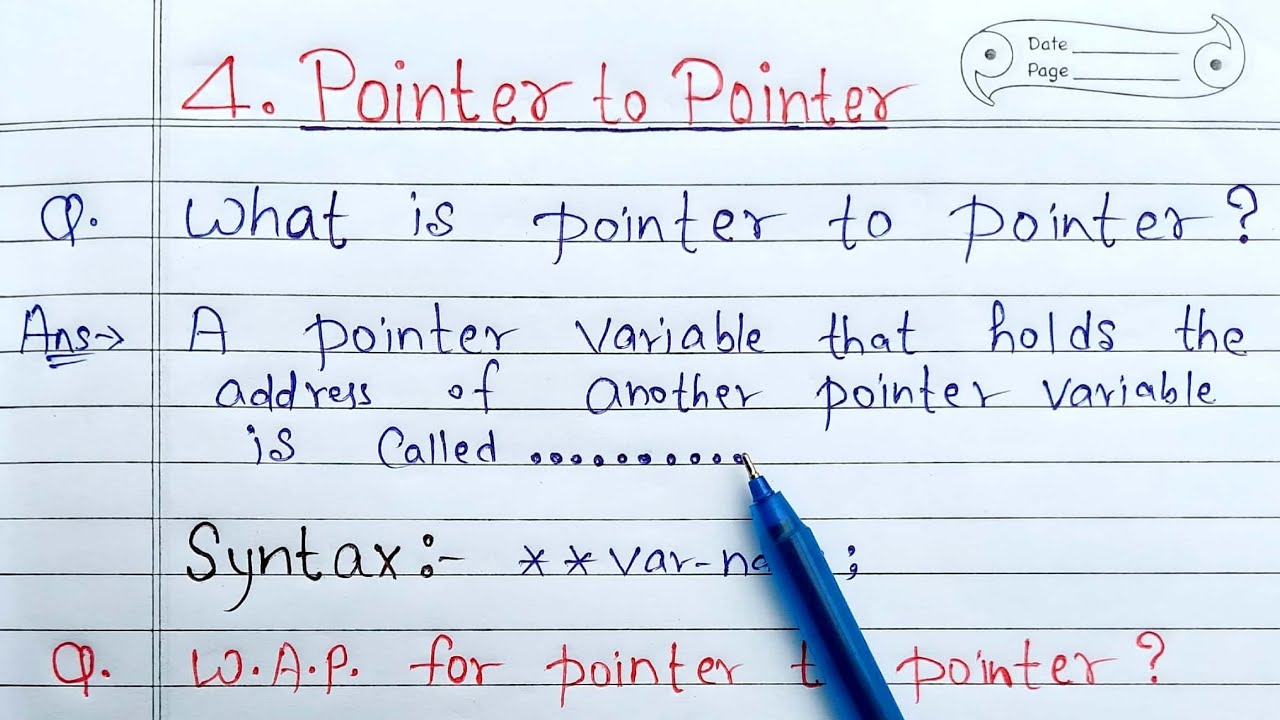 Date
Page
4. Pointer to Pointer
Q. What is pointer to pointer?
Ans→ A pointer variable that holds the
address of another pointer variable
is called ..........
Syntax:- **var-na ;
Q. W.A.P. for pointer t pointer?